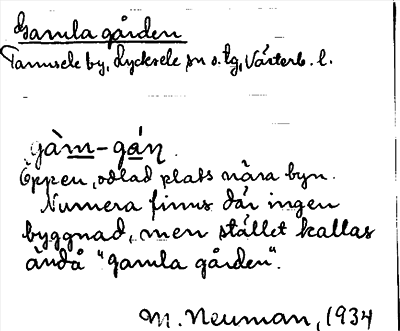 Gamla gården
Tannsele by, Lycksele sn o. tg, Västerb. l.
gàm-gáṇ.
Öppen, odlad plats nära byn.
Numera finns där ingen
byggnad, men stället kallas
ändå "gamla gården".
M. Neuman, 1934